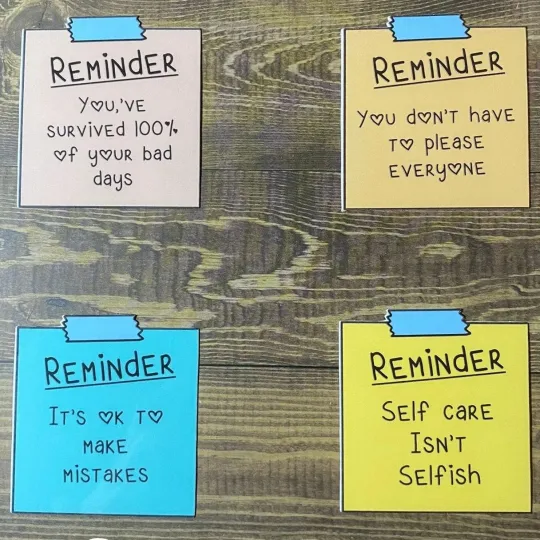 REMINDER
YOU,'VE
SURVIVED 100%
OF YOUR bad
days
REMINDER
YOU dON'T have
TO please
EVERYONE
REMINDER
IT'S OK TO
MAKE
MISTAKES
REMINDER
Self CARE
ISN'T
Selfish